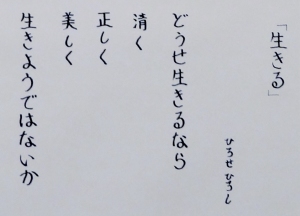 「生きる」
ひろせひろし
どうせ生きるなら
清く
正しく
美しく
生きようではないか